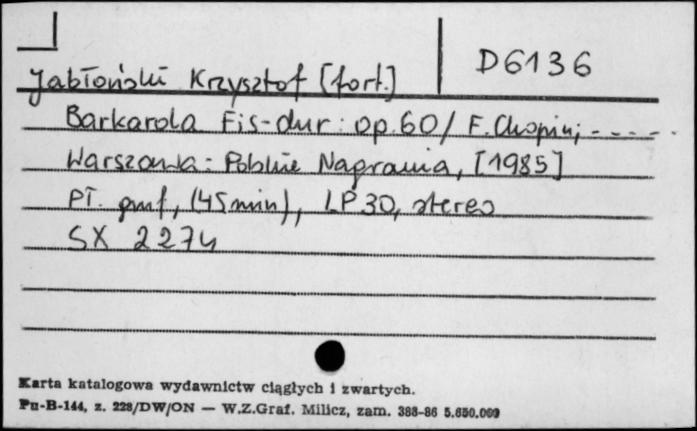 D6136
Jabłoński Krzysztof [fort.]
Barkarola Fis-dur : op.60 / F. Chopin; - - - - -
Warszawa : Polskie Nagrania, [1985]
Pł. gmf, (45 min), LP 30, stereo
SX 2274
Karta katalogowa wydawnictw ciągłych i zwartych.
Pu-B-144, z. 228/DW/ON — W.Z.Graf. Milicz, zam. 388-86 5.650.000